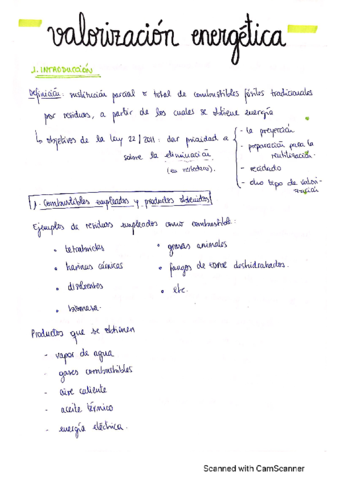 valorización energética
1. INTRODUCCIÓN
Definición: sustitución parcial o total de combustibles fósiles tradicionales
por residuos, a partir de los cuales se obtiene energía
↳ objetivos de la ley 22/2011: dar prioridad a
sobre la eliminación
(en vertedero).
- la prevención
- preparación para la
reutilización
- reciclado
- otro tipo de valori-
zación
1. Combustibles empleados y productos obtenidos
Ejemplos de residuos empleados como combustible:
• harinas cárnicas
• disolventes
• biomasa.
• grasas animales
• fangos de deshidratados.
• etc.
Productos que se obtienen
- vapor de agua
- gases combustibles
- aire caliente
- aceite térmico
- energía eléctrica.
Scanned with CamScanner